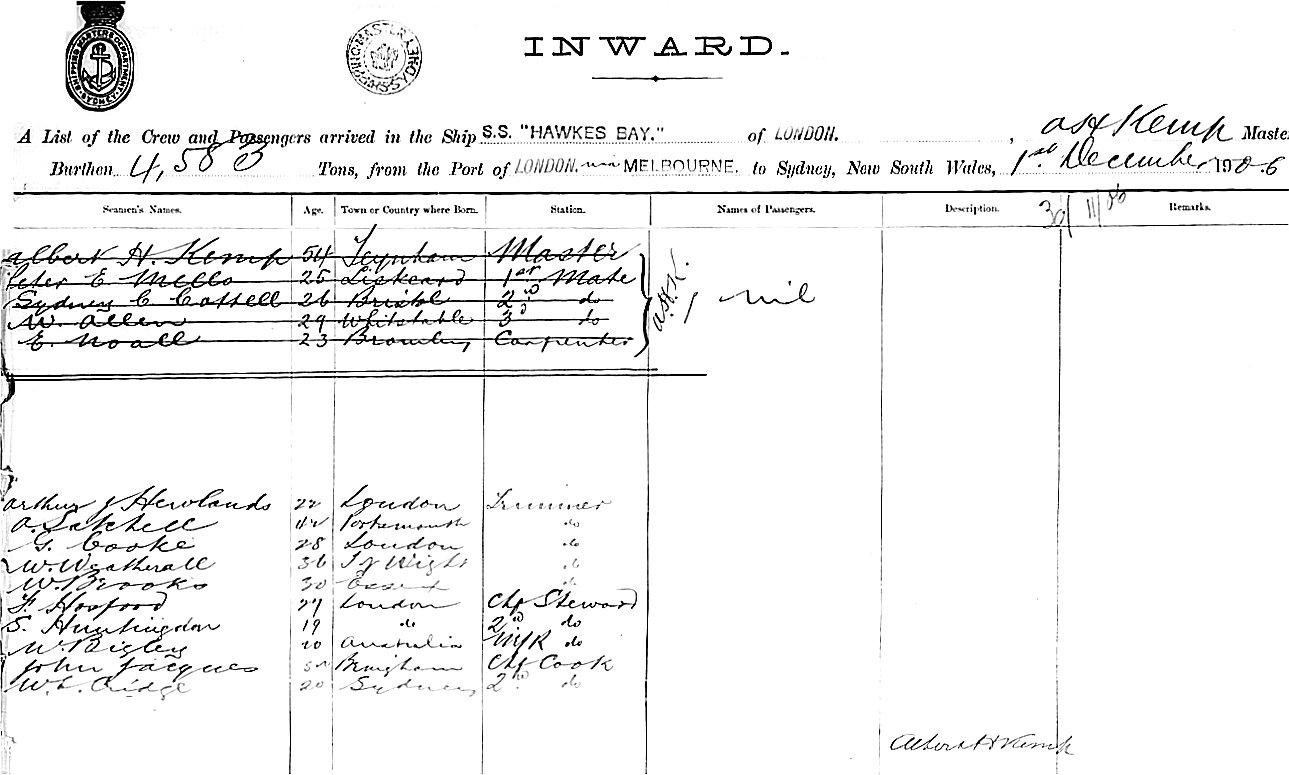 SHIPPING MASTERS DEPARTMENT SYDNEY
SHIPPING MASTER SYDNEY
INWARD.
A List of the Crew and Passengers arrived in the Ship S.S. "HAWKES BAY." of LONDON. , A H Kemp Maste
Burthen 4,583 Tons, from the Port of LONDON. via MELBOURNE. to Sydney, New South Wales, 1st December 1906
Seamen's Names. Age. Town or Country where Born. Station. Names of Passengers. Description. 30/11/06 Remarks.
Albert H. Kemp 54 Teynham Master
Peter E Mello 25 Liskeard 1st Mate
Sydney C Cottell 26 Bristol 2nd do
W. Allen 29 Whitstable 3d do
E. Noall 23 Bromley Carpenter
A.H.K. nil
Arthur J Hewlands 22 London Trimmer
A. Satchell 42 Portsmouth do
G. Cooke 28 London do
W. Weatherall 36 I of Wight do
W. Brooks 30 Essex do
F. Hosford 27 London Chf Steward
S. Huntingdon 19 do 2nd do
W. Bigley 20 Australia M/R do
John Jacques Bringham Chf Cook
W. L. Cridge 20 Sydney 2nd do
Albert H Kemp